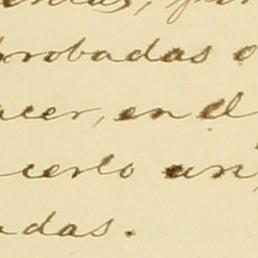 probadas o
acer, en el
cerlo un
adas.